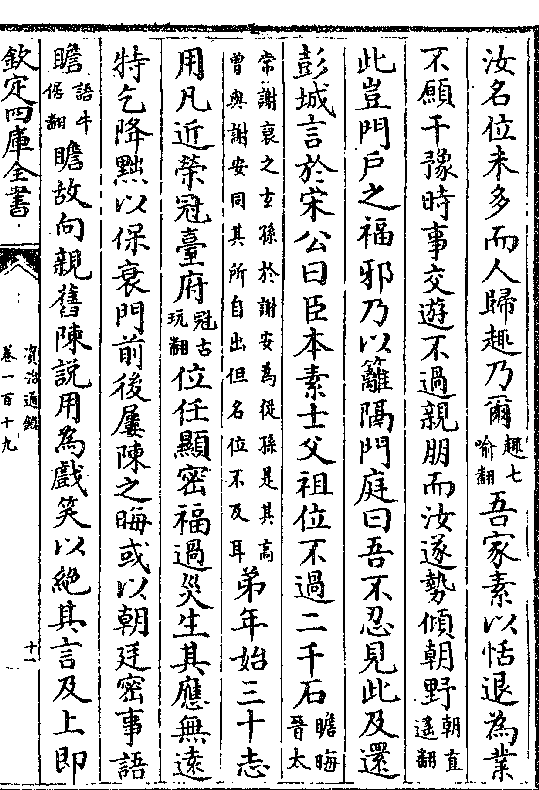 汝名位未多而人歸趣乃爾趣七喻翻吾家素以恬退為業
不願干豫時事交遊不過親朋而汝遂勢傾朝野朝直遥翻
此豈門戶之福邪乃以籬隔門庭曰吾不忍見此及還
彭城言於宋公曰臣本素士父祖位不過二千石瞻晦晉太
常謝裒之玄孫於謝安為從孫是其高曾與謝安同其所自出但名位不及耳弟年始三十志
用凡近榮冠臺府冠古玩翻位任顯密福過災生其應無遠
特乞降黜以保衰門前後屢陳之晦或以朝廷密事語
瞻語牛倨翻瞻故向親舊陳説用為戲笑以絶其言及上即
欽定四庫全書
資治通鑑
卷一百十九
十一